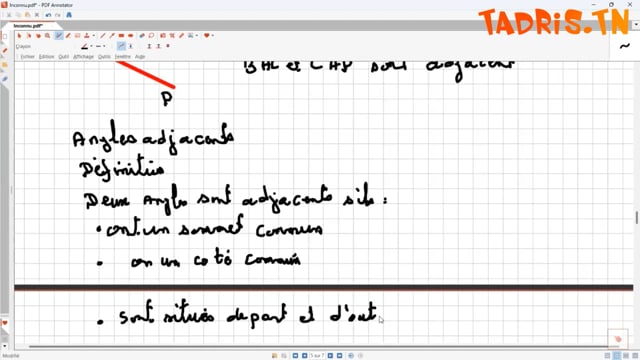 Inconnu.pdf* - PDF Annotator
TADRIS.TN
Inconnu.pdf*
Crayon
Fichier Edition Outil Affichage Outils Fenêtre Aide
sont adjacent
P
Angles adjacents
Définition
Deux Angles sont adjacents s'ils :
• ont un sommet commun
• on un coté commun
• sont situés de part et d'aut
Modifié
5 sur 7